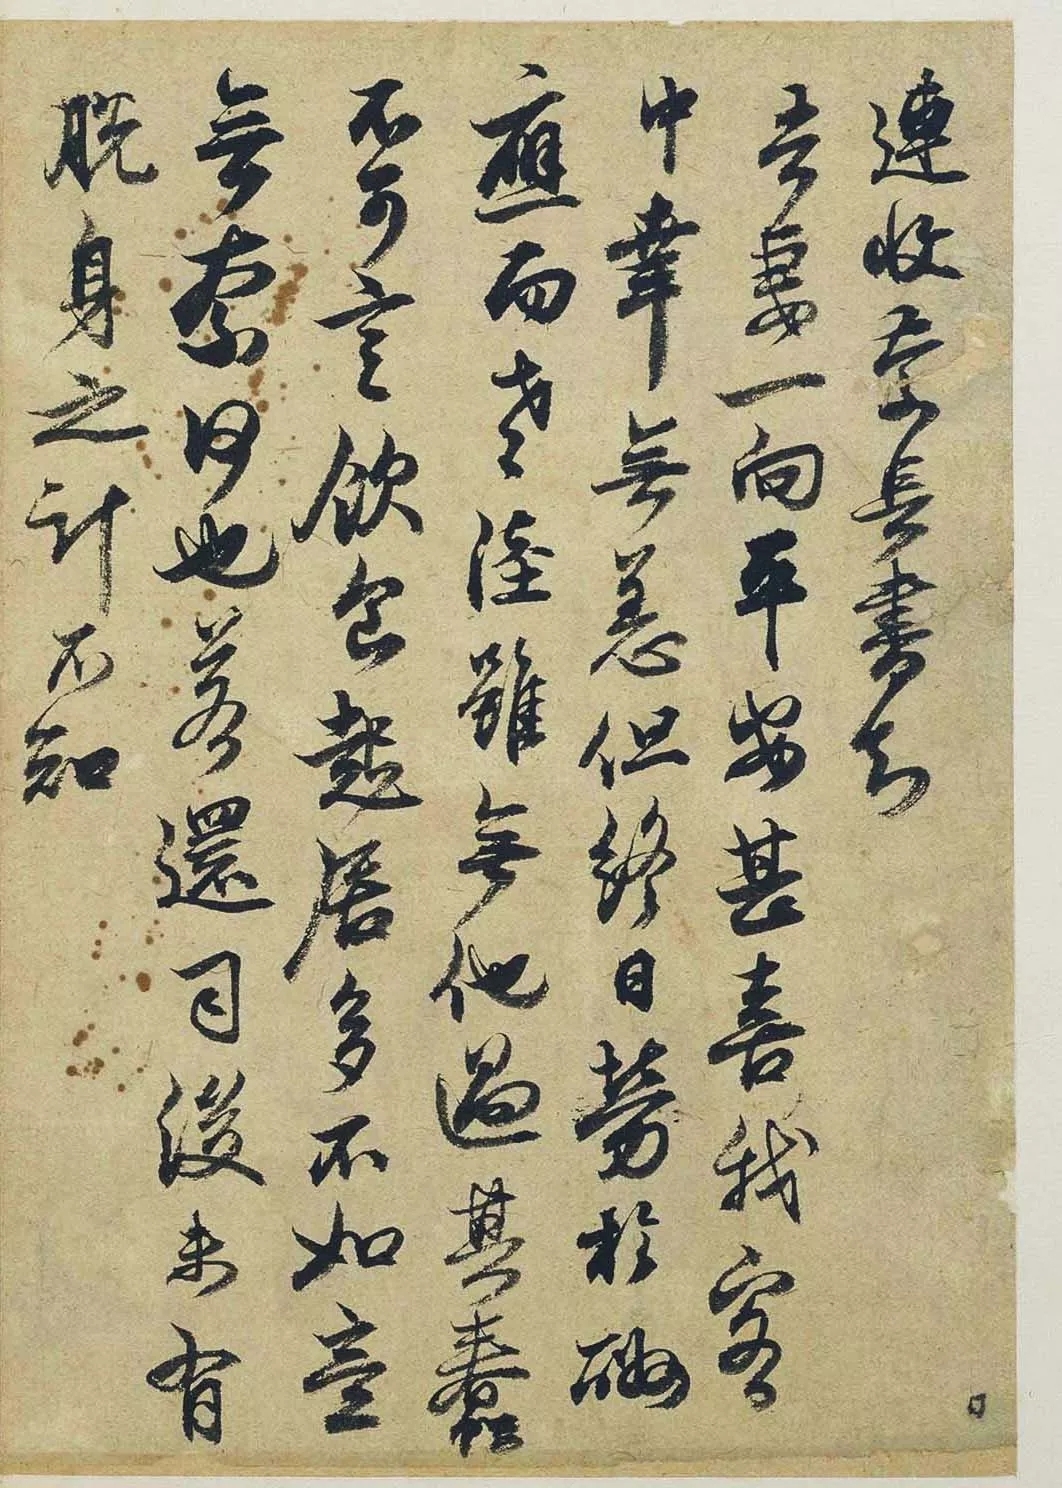 連收長書知
吾妻一向平安甚喜我客
中幸無恙但終日勞於酬
應而老陸雖無他過其蠢
不可言飲食起居多不如意
無奈何也若還司後未有
脫身之計不知